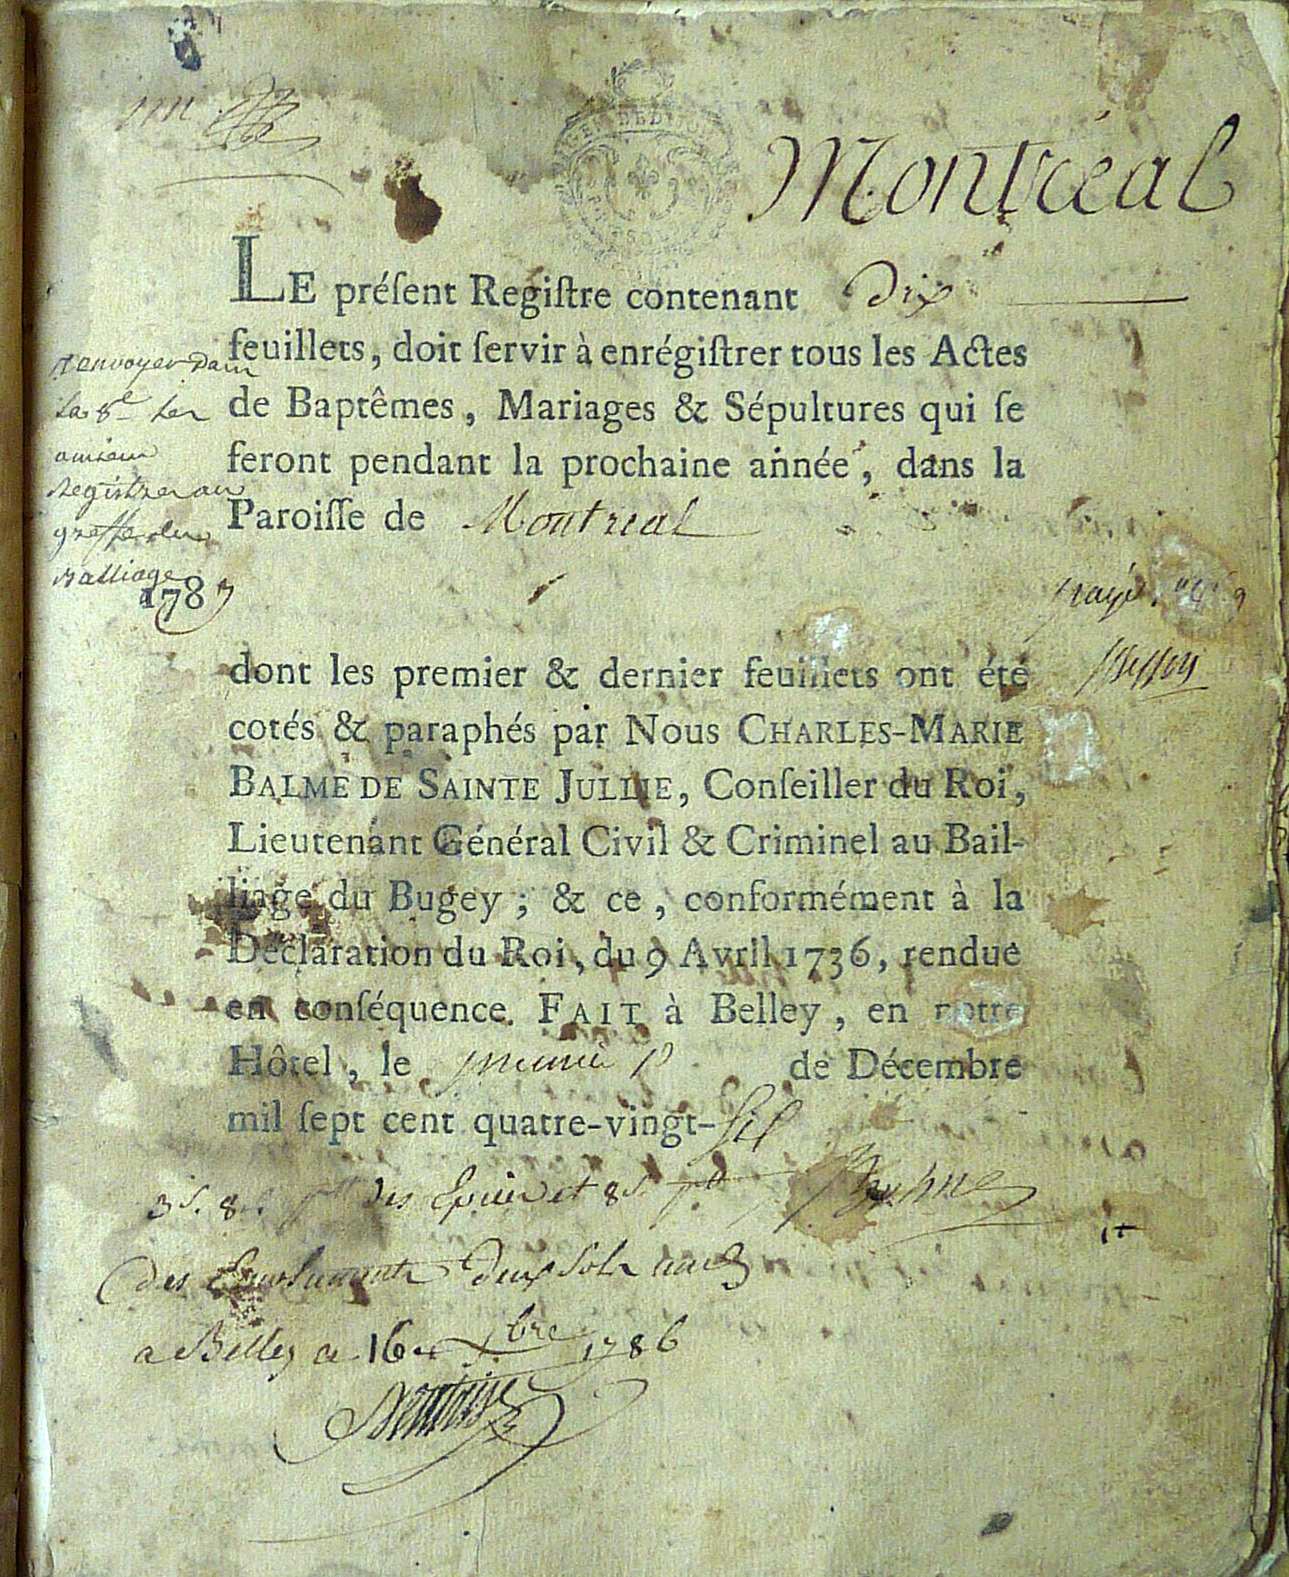 Montréal
LE préſent Regiſtre contenant dix
feuillets, doit ſervir à enrégiſtrer tous les Actes
de Baptêmes, Mariages & Sépultures qui ſe
feront pendant la prochaine année, dans la
Paroiſſe de Montreal
renvoyer dans
les 8e les
Registres au
greffe du
Balliage
1787
payé
dont les premier & dernier feuillets ont été
cotés & paraphés par Nous CHARLES-MARIE
BALME DE SAINTE JULLIE, Conſeiller du Roi,
Lieutenant Général Civil & Criminel au Bail-
liage du Bugey ; & ce, conformément à la
Déclaration du Roi, du 9 Avril 1736, rendue
en conſéquence. FAIT à Belley, en notre
Hôtel, le premier de Décembre
mil ſept cent quatre-vingt-ſix
des
deux sols
a Belley ce 16 Xbre 1786